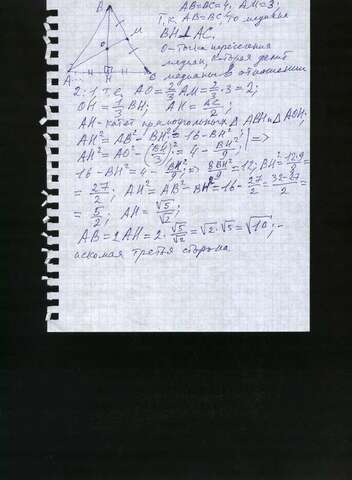 B
AB=BC=4, AM=3;
Т.к. AB=BC, то медиана
M
BH⊥AC,
O
O-точка пересечения
медиан, которая делит
A H C
медианы в отношении
2:1, т.е. AO=2/3 AM=2/3·3=2;
OH=1/3 BH; AH=AC/2;
AH-катет прямоугольных △ABH и △AOH;
AH²=AB²-BH²=16-BH²;
AH²=AO²-(BH/3)²=4-BH²/9; | =>
16-BH²=4-BH²/9; => 8BH²/9=12; BH²=12·9/8=
=27/2; AH²=AB²-BH²=16-27/2=32-27/2=
=5/2; AH=√5/√2;
AB=2AH=2·√5/√2=√2·√5=√10;-
искомая третья сторона